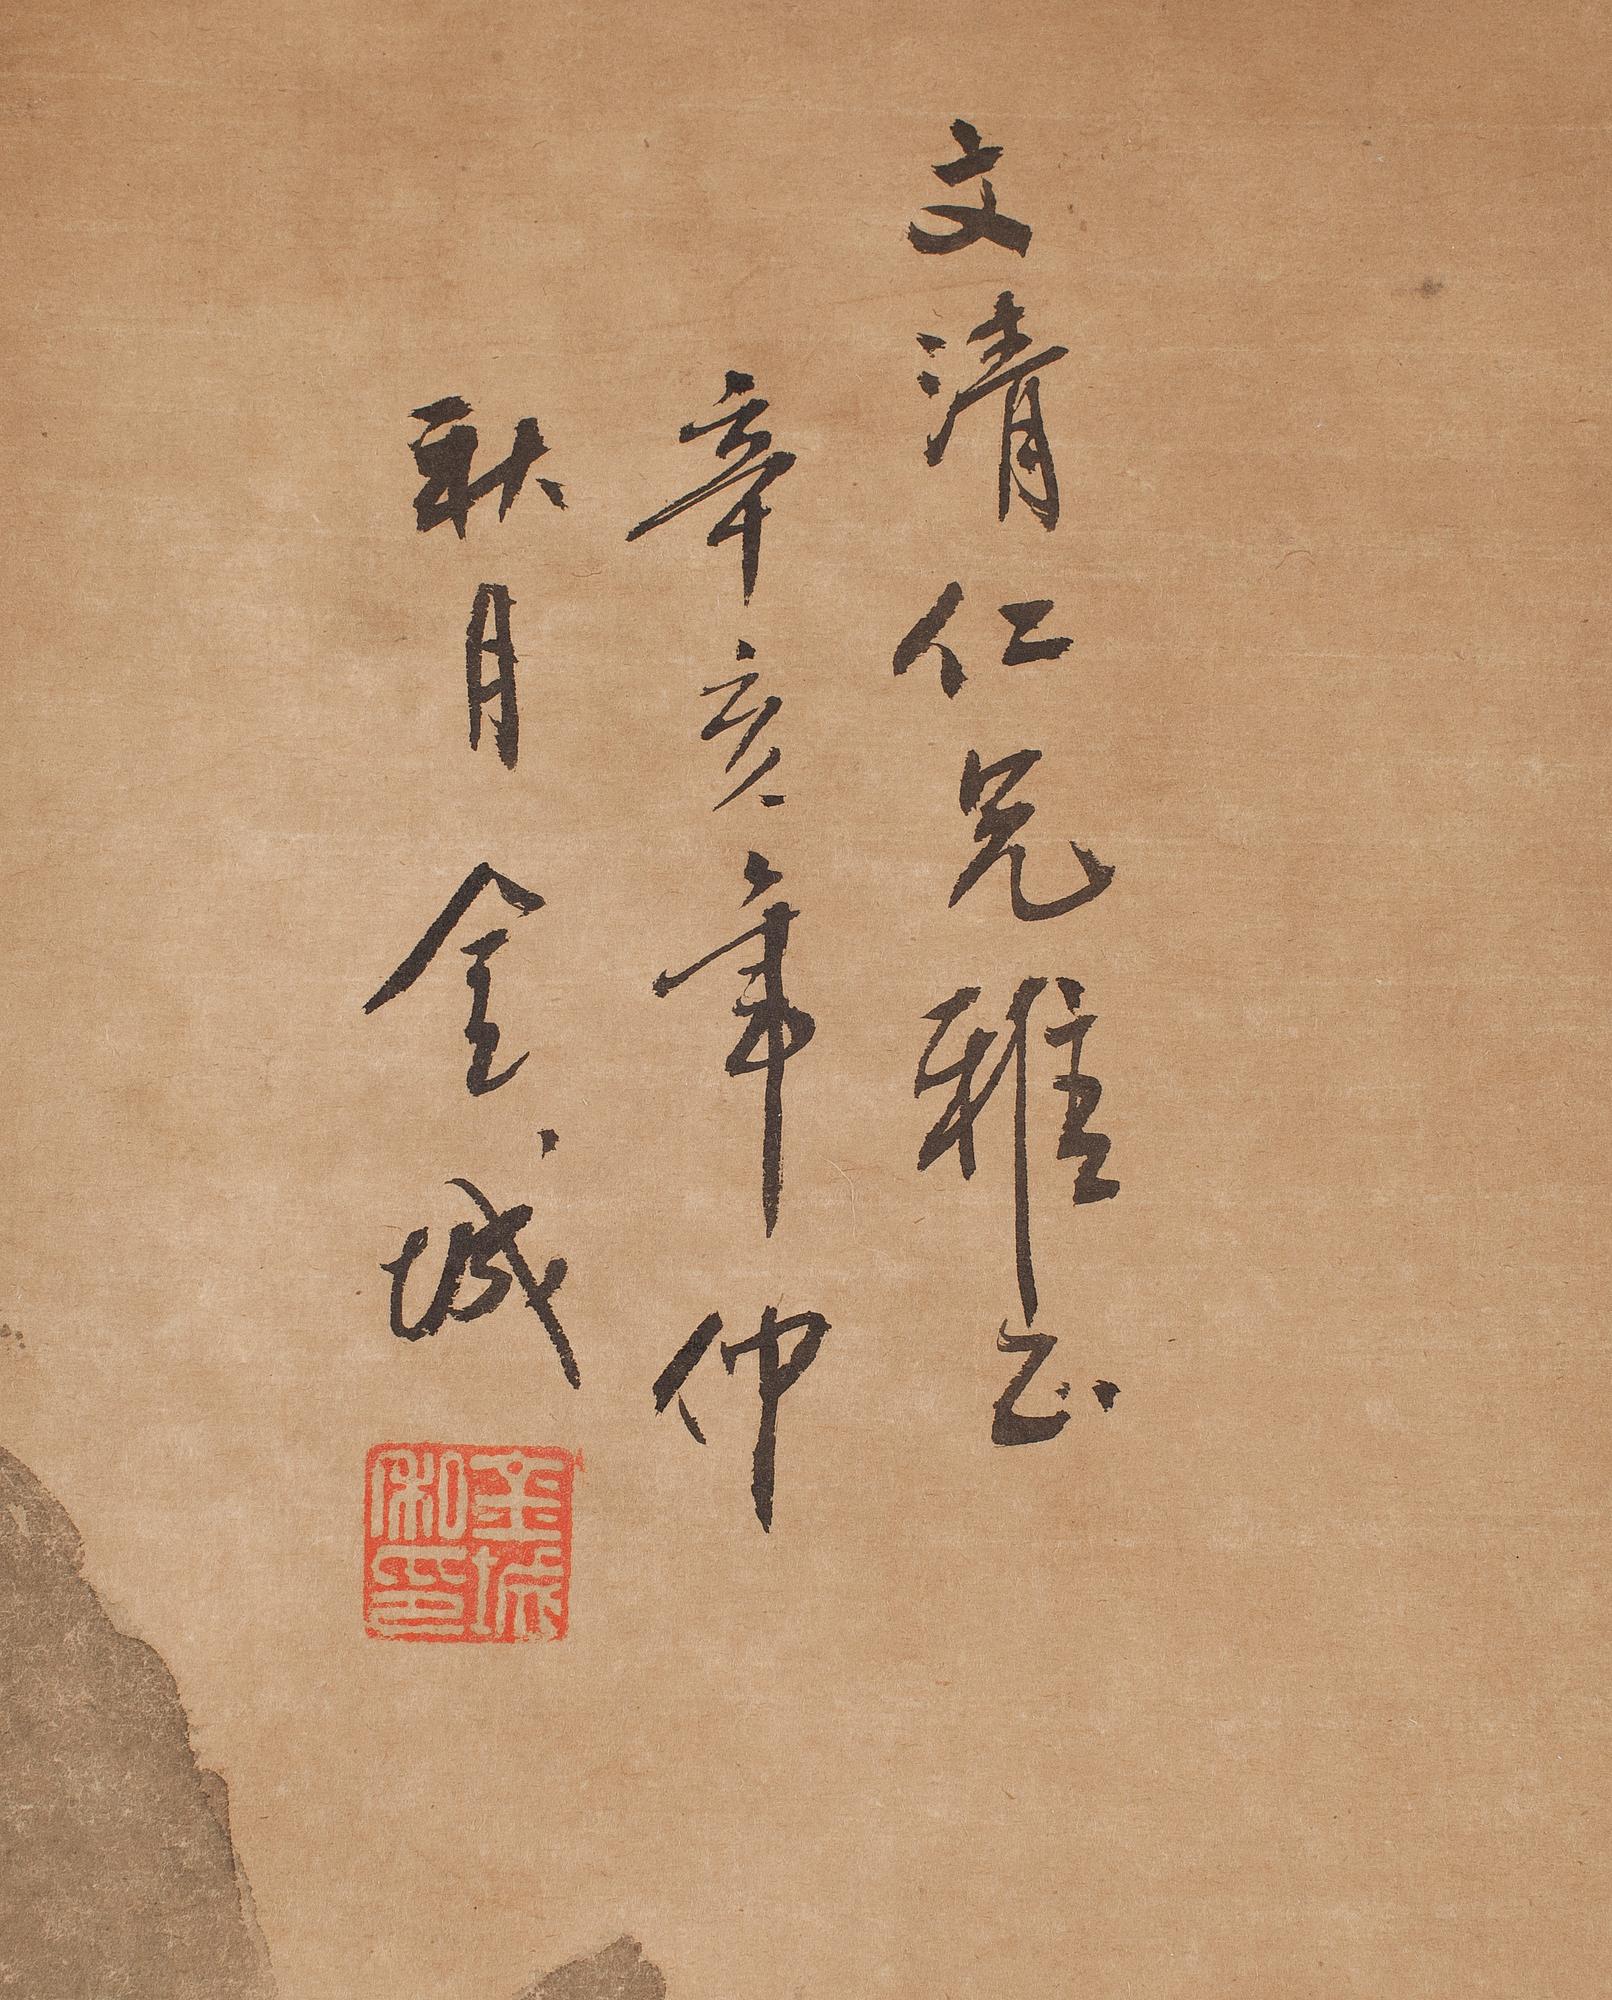 文清仁兄雅正
辛亥年仲
秋月金城
金城
私印